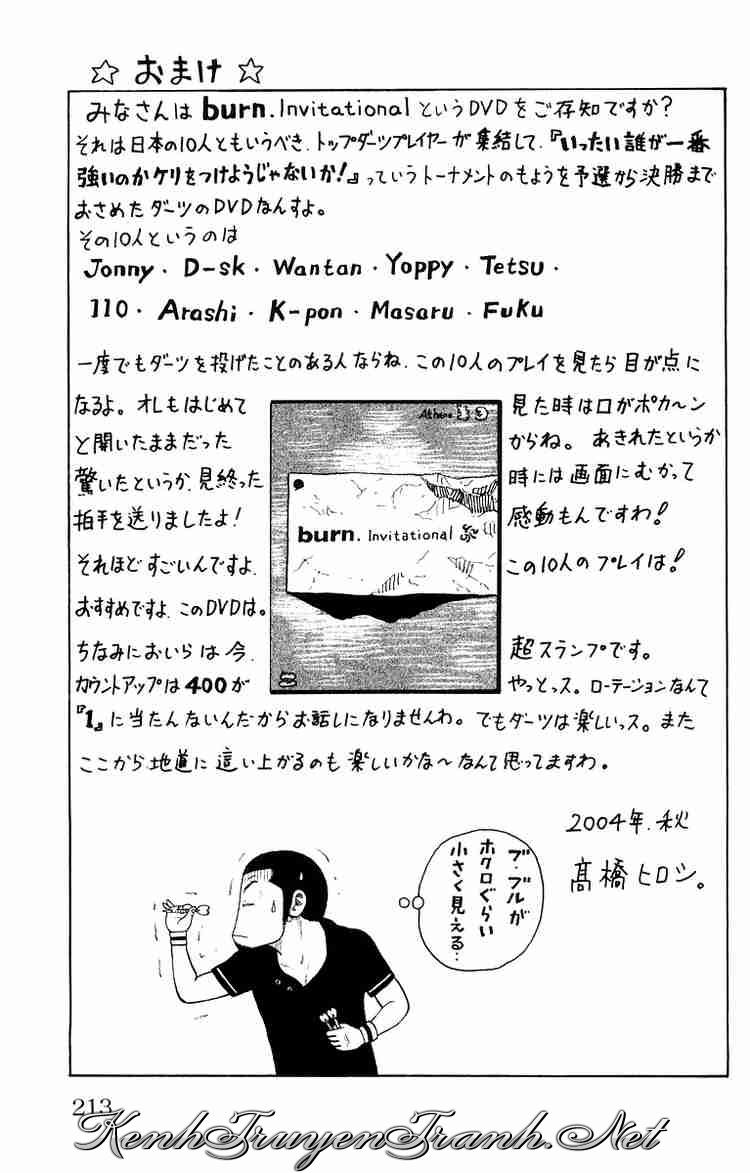 ☆ おまけ ☆
みなさんは burn. Invitational というDVDをご存知ですか？
それは日本の10人ともいうべき、トップダーツプレイヤーが集結して、『いったい誰が一番
強いのかケリをつけようじゃないか！』っていうトーナメントのもようを予選から決勝まで
おさめたダーツのDVDなんすよ。
その10人というのは
Jonny・D-sk・Wantan・Yoppy・Tetsu・
110・Arashi・K-pon・Masaru・Fuku
一度でもダーツを投げたことのある人ならね、この10人のプレイを見たら目が点に
なるよ。オレもはじめて見た時は口がポカ〜ン
と開いたままだったからね。あきれたというか
驚いたというか、見終った時には画面にむかって
拍手を送りましたよ！感動もんですわ！
それほどすごいんですよ、この10人のプレイは！
おすすめですよ、このDVDは。
ちなみにおいらは今、超スランプです。
カウントアップは400がやっとっス。ローテーションなんて
『1』に当たんないんだからお話しになりませんわ。でもダーツは楽しいっス。また
ここから地道に這い上がるのも楽しいかな〜なんて思ってますわ。
Athens
burn. Invitational
2004年、秋
髙橋ヒロシ。
ブ・ブルが
ホクロぐらい
小さく見える…
213
KenhTruyenTranh.Net